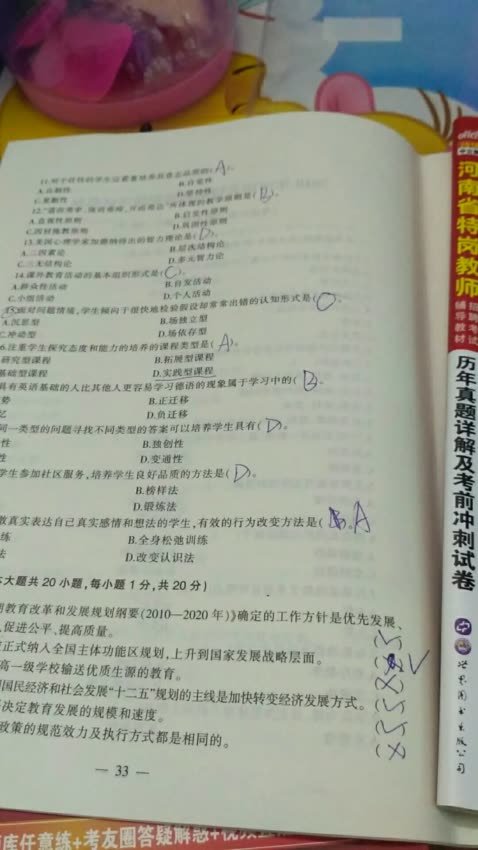 11.对于任性的学生应着重培养其意志品质的(A)。
A.自制性 B.自觉性
C.果断性 D.坚持性
B.启发性原则
C.因材施教原则 D.巩固性原则
13.美国心理学家加德纳得出的智力理论是(D)。
A.二因素论 B.层次结构论
C.三维结构论 D.多元智力论
14.课外教育活动的基本组织形式是(C)。
A.群众性活动 B.自发活动
C.小组活动 D.个人活动
15.面对问题情境,学生倾向于很快地检验假设却常常出错的认知形式是(C)。
A.沉思型 B.场独立型
C.冲动型 D.场依存型
6.注重学生探究态度和能力的培养的课程类型是(A)。
研究型课程 B.拓展型课程
基础型课程 D.实践型课程
具有英语基础的人比其他人更容易学习德语的现象属于学习中的(B)。
势 B.正迁移
忆 D.负迁移
同一类型的问题寻找不同类型的答案可以培养学生具有(D)。
性 B.独创性
性 D.变通性
学生参加社区服务,培养学生良好品质的方法是(D)。
B.榜样法
D.锻炼法
敢真实表达自己真实感情和想法的学生,有效的行为改变方法是( )。A
练 B.全身松弛训练
法 D.改变认识法
本大题共20小题,每小题1分,共20分)
期教育改革和发展规划纲要(2010—2020年)》确定的工作方针是优先发展、
促进公平、提高质量。 (√)
正式纳入全国主体功能区规划,上升到国家发展战略层面。 ( )√
高一级学校输送优质生源的教育。 (×)
国民经济和社会发展“十二五”规划的主线是加快转变经济发展方式。 (√)
决定教育发展的规模和速度。 (√)
政策的规范效力及执行方式都是相同的。 (×)
— 33 —
库任意练+考友圈答疑解惑+视频
河南省特岗教师
招聘考试
辅导教材
历年真题详解及考前冲刺试卷
世界图书出版公司